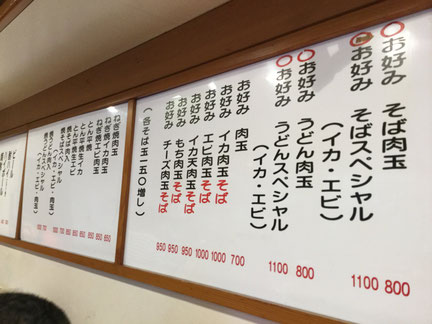 〇お好み そば肉玉 800
〇お好み そばスペシャル 1100
(イカ・エビ)
〇お好み うどん肉玉 800
〇お好み うどんスペシャル 1100
(イカ・エビ)
お好み 肉玉 700
お好み イカ肉玉そば 1000
お好み エビ肉玉そば 1000
お好み イカ天肉玉そば 950
お好み もち肉玉そば 950
お好み チーズ肉玉そば 950
(各そば玉一五〇増し)
ねぎ焼肉玉
ねぎ焼イカ肉玉
ねぎ焼エビ肉玉
とん平焼
とん平焼生イカ
とん平焼生エビ
焼そば肉入
焼そばスペシャル
(イカ・エビ・肉玉)
焼うどん肉入
(イカ・エビ・肉玉)